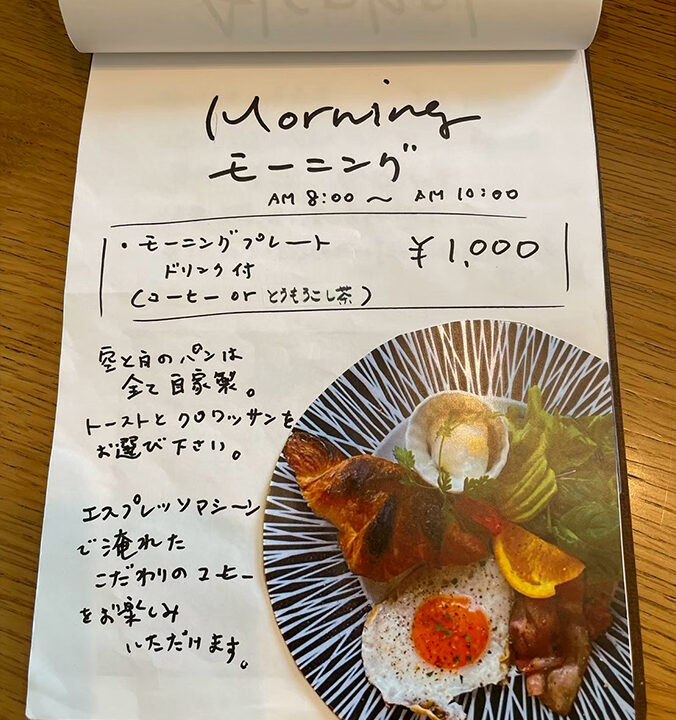 Morning
モーニング
AM 8:00 〜 AM 10:00
・モーニングプレート ¥1,000
ドリンク付
(コーヒー or とうもろこし茶)
空と白のパンは
全て自家製。
トーストとクロワッサンを
お選び下さい。
エスプレッソマシーン
で淹れた
こだわりのコーヒー
をお楽しみ
いただけます。